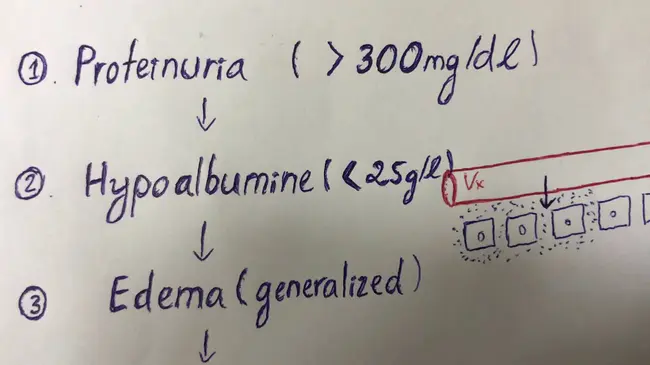 ① Proteinuria ( > 300mg/dl)
② Hypoalbumine ( < 25g/l)
Vx
③ Edema (generalized)